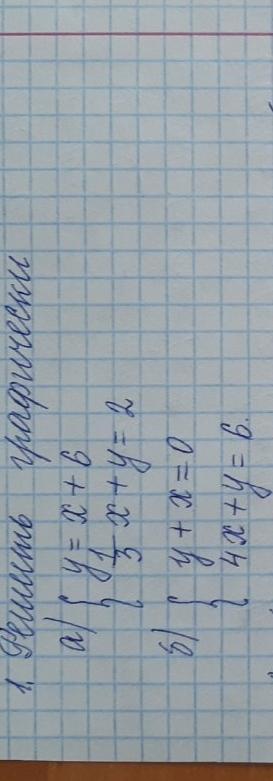 1. Решить графически
а) { y = x + 6
1/3 x + y = 2
б) { y + x = 0
4x + y = 6.